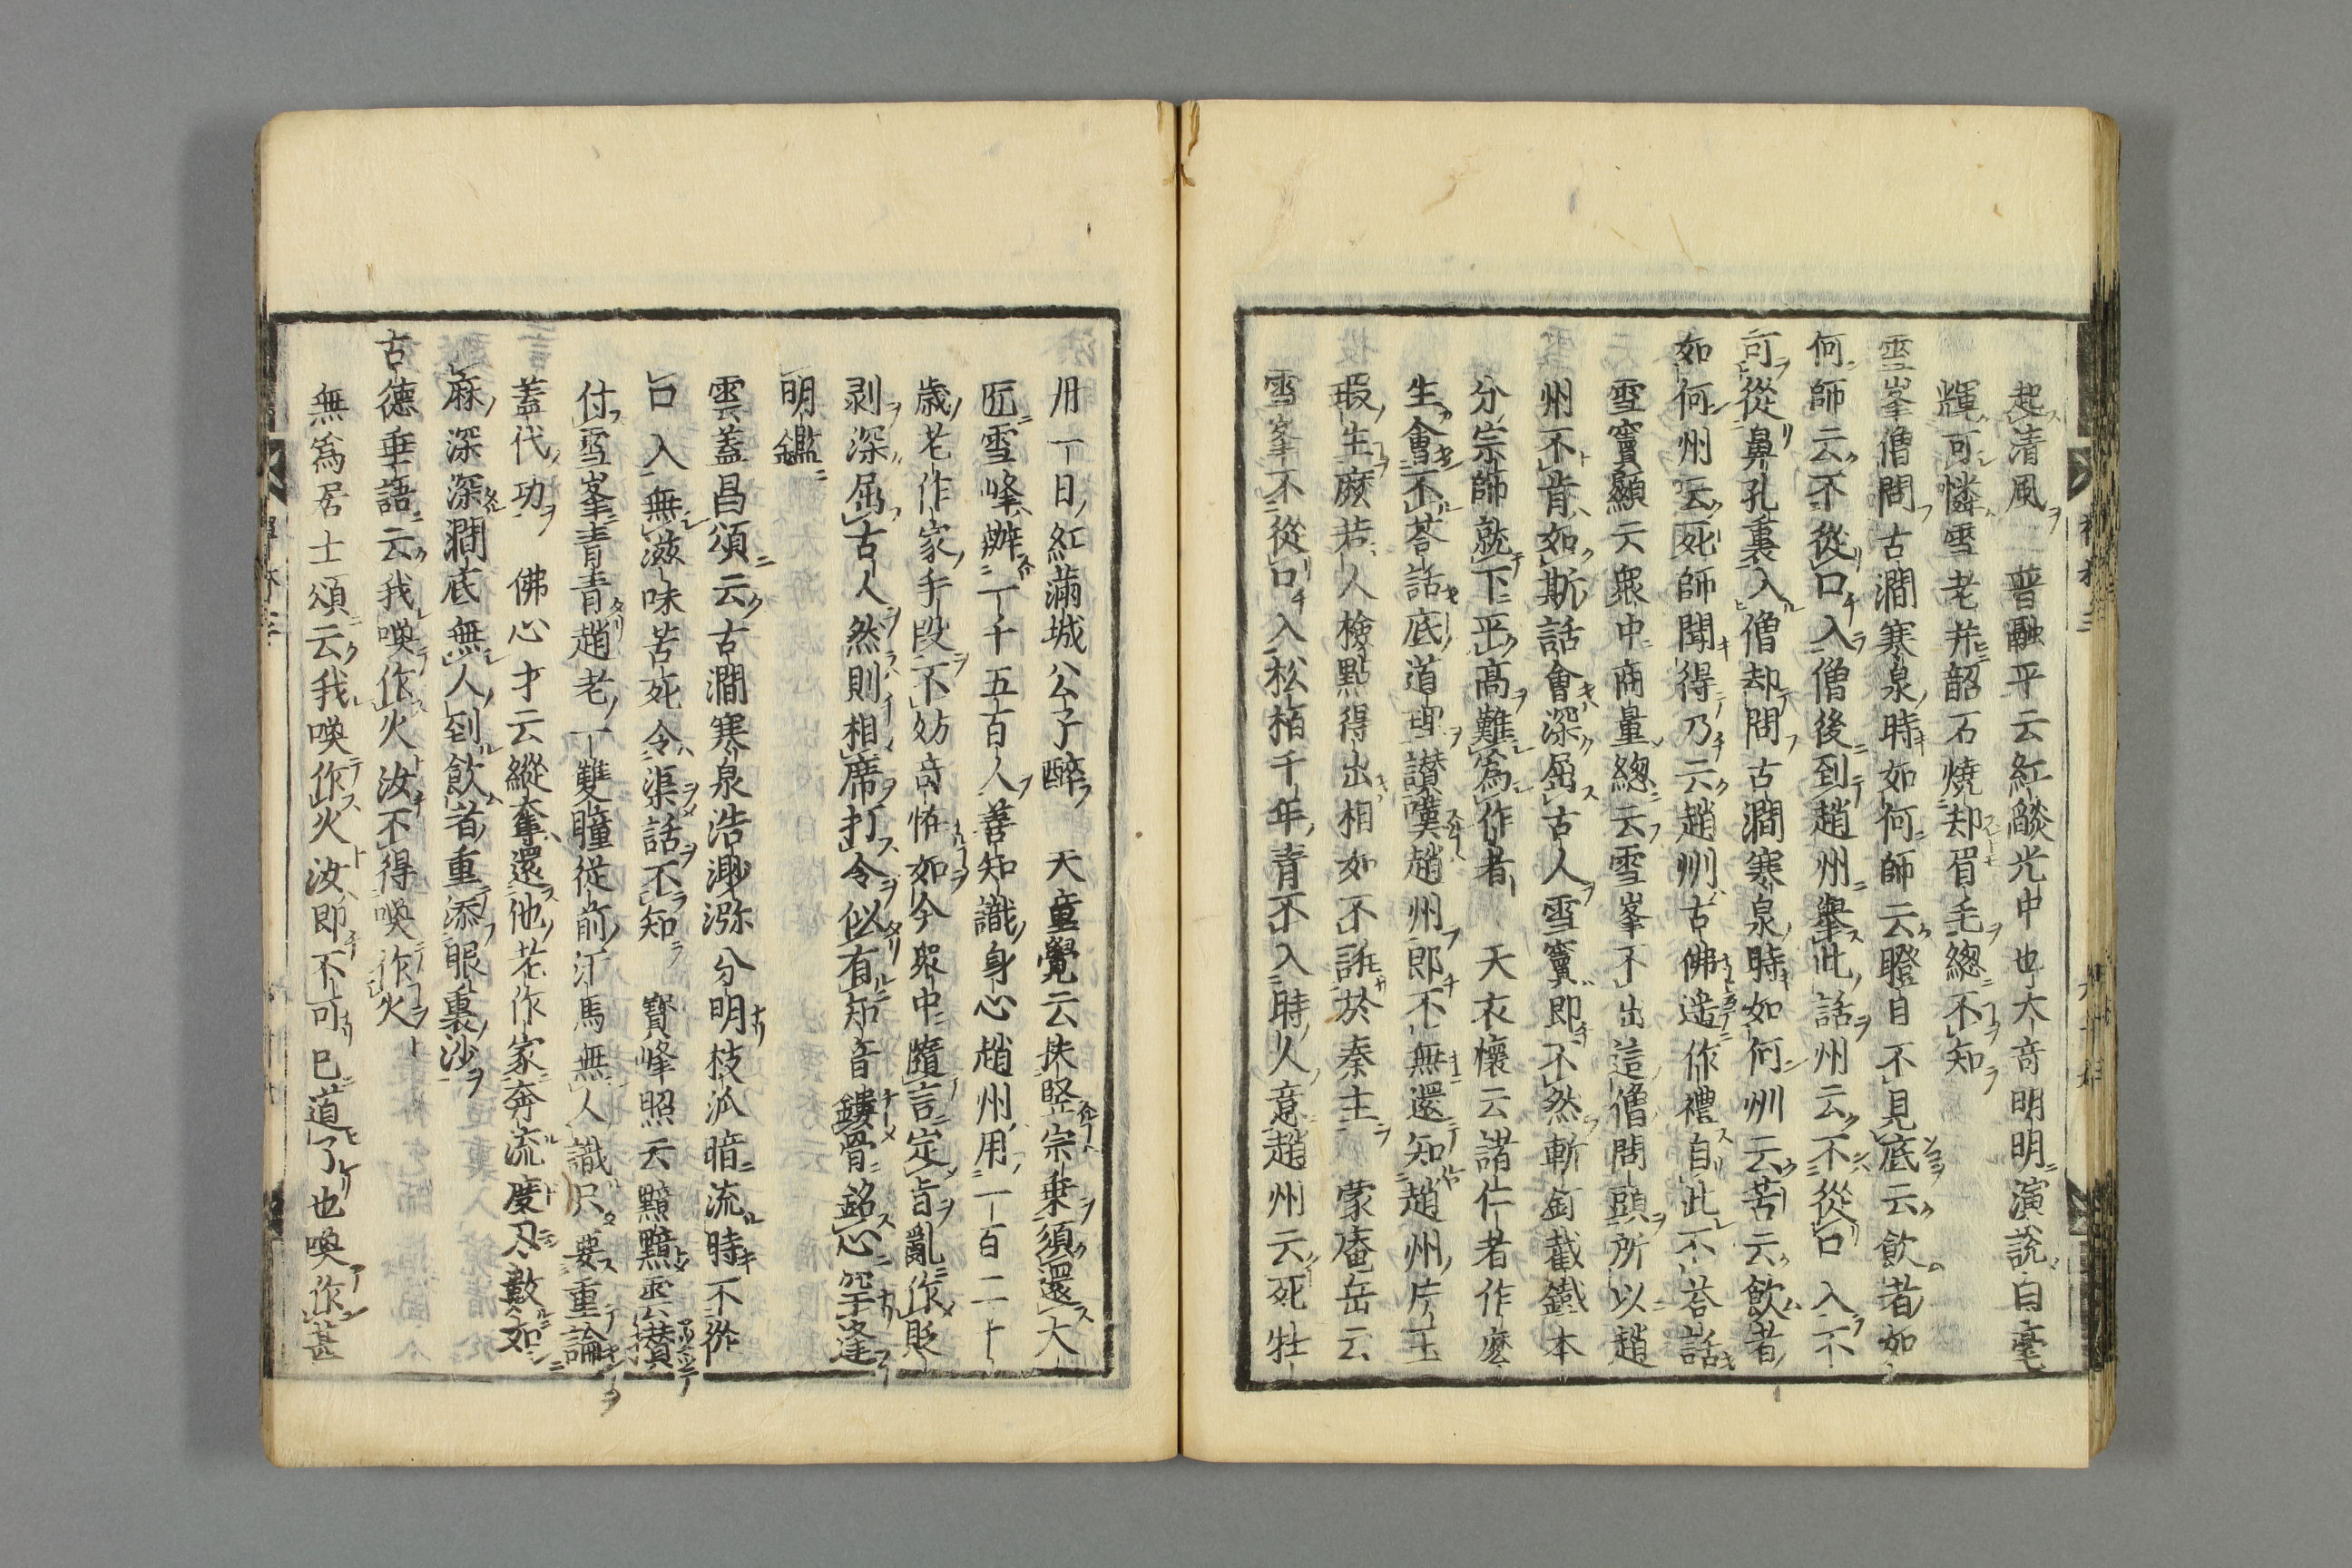 起清風　普融平云紅燄光中也大奇明明演說白毫
輝可憐雪老并韶石燒却眉毛總不知
雪峯僧問古澗寒泉時如何師云瞪目不見底云飲者如
何師云不從口入僧後到趙州舉此話州云不從口入不
可從鼻孔裏入僧却問古澗寒泉時如何州云苦云飲者
如何州云死師聞得乃云趙州古佛遙作禮自此不荅話
雪竇顯云眾中商量總云雪峯不出這僧問頭所以趙
州不肯如斯話會深屈古人雪竇即不然斬釘截鐵本
分宗師就下平高難為作者　天衣懷云諸仁者作麽
生會不荅話底道理讃嘆趙州郎不無還知趙州片玉
瑕生麽若人檢點得出相如不誑於秦主　蒙庵岳云
雪峯不從口入松栢千年青不入時人意趙州云死牡
丹一日紅滿城公子醉　天童覺云扶竪宗乗須還大
匠雪峰辦一千五百人善知識身心趙州用一百二十
歳老作家手段不妨奇恠如今眾中隨言定旨亂作貶
剥深屈古人然則相席打令似有知音鏤骨銘心罕逢
明鑑
雲蓋昌頌云古澗寒泉浩渺瀰分明枝泒暗流時不從
口入無滋味苦死令渠話不知　寶峰照云黯黯雲攅
付雪峯青青趙老一雙瞳從前汗馬無人識只要重論
蓋代功　佛心才云縱奪還他老作家奔流度刃數如
麻深深澗底無人到飲者重添眼裏沙
古德垂語云我喚作火汝不得喚作火
無為居士頌云我喚作火汝即不可已道了也喚作甚